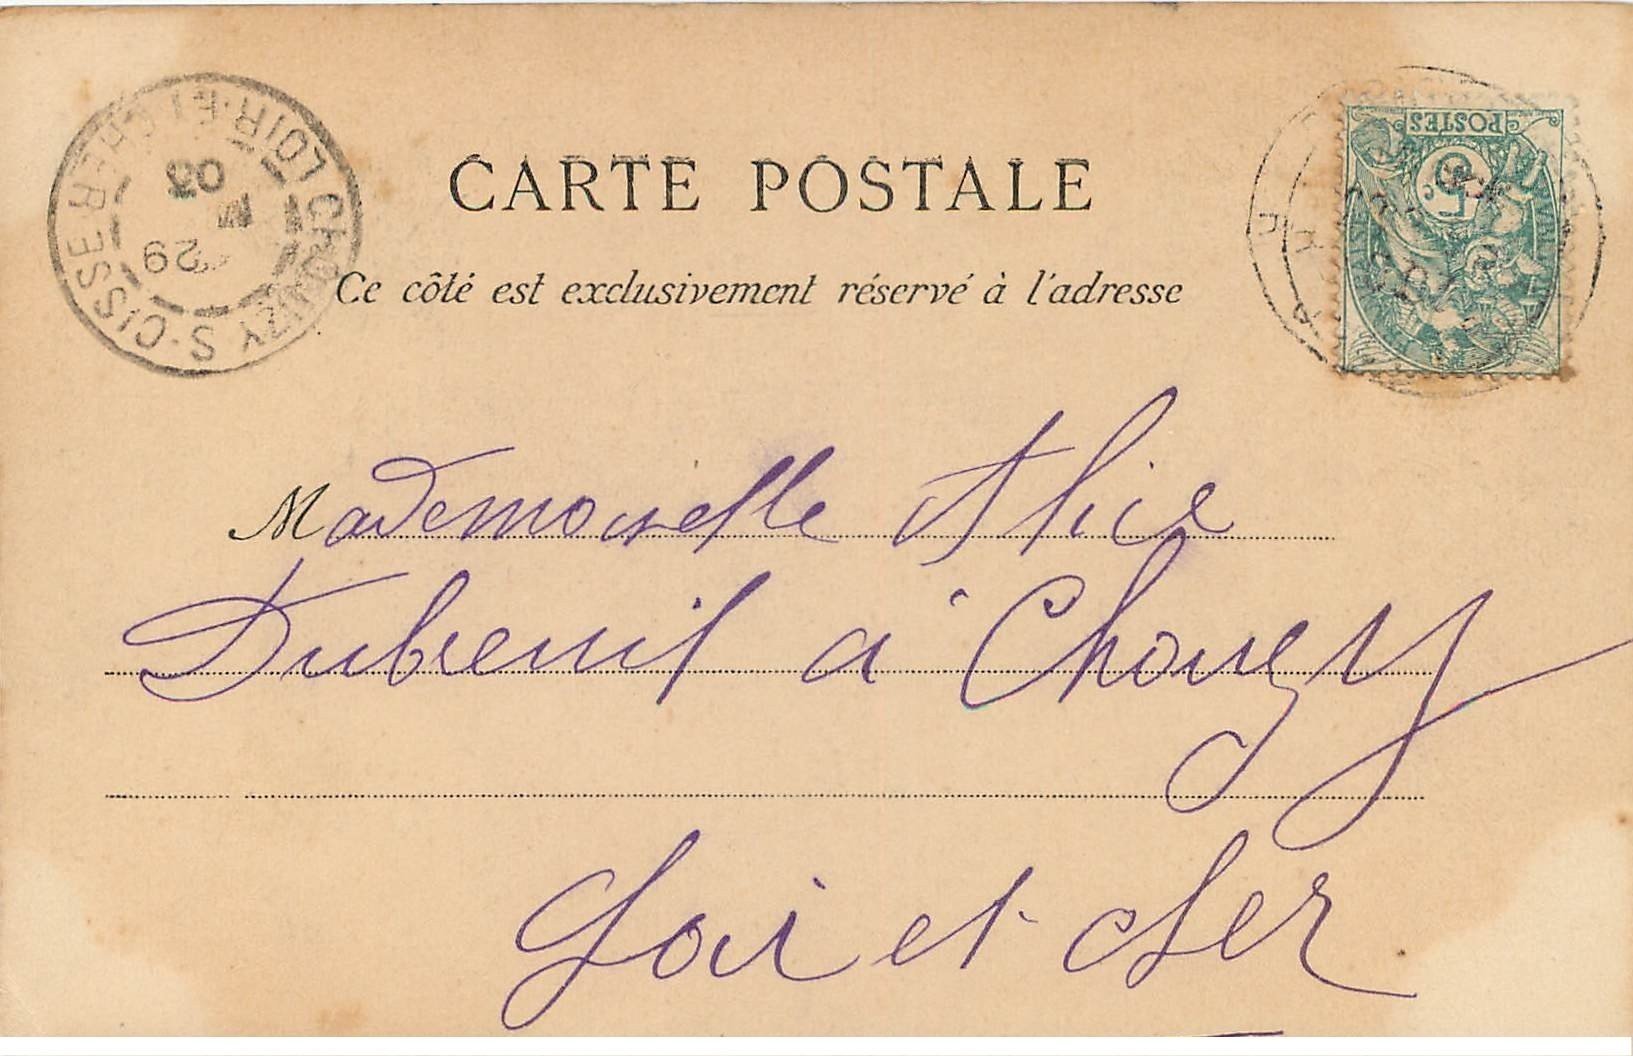 CHOUZY S. CISSE
LOIR-ET-CHER
29
03
POSTES
5
CARTE POSTALE
Ce côté est exclusivement réservé à l'adresse
Mademoiselle Alice
Dubreuil à Chouzy
Loir et Cher